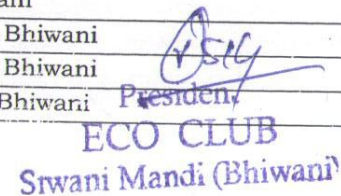 Bhiwani
Bhiwani
Bhiwani
President
ECO CLUB
Siwani Mandi (Bhiwani)